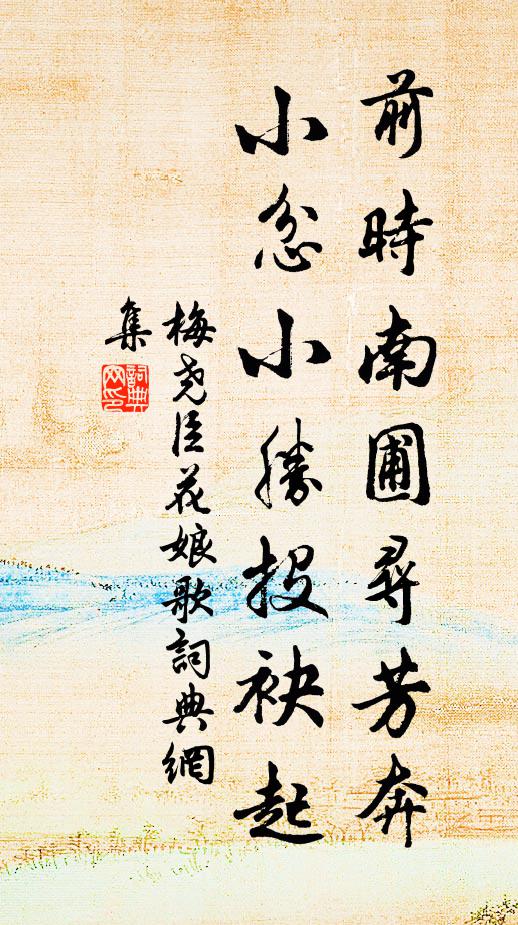 前時南圃尋芳奔
小忿小勝投袂起
梅堯臣花娘歌詞典網
集
詞典網印